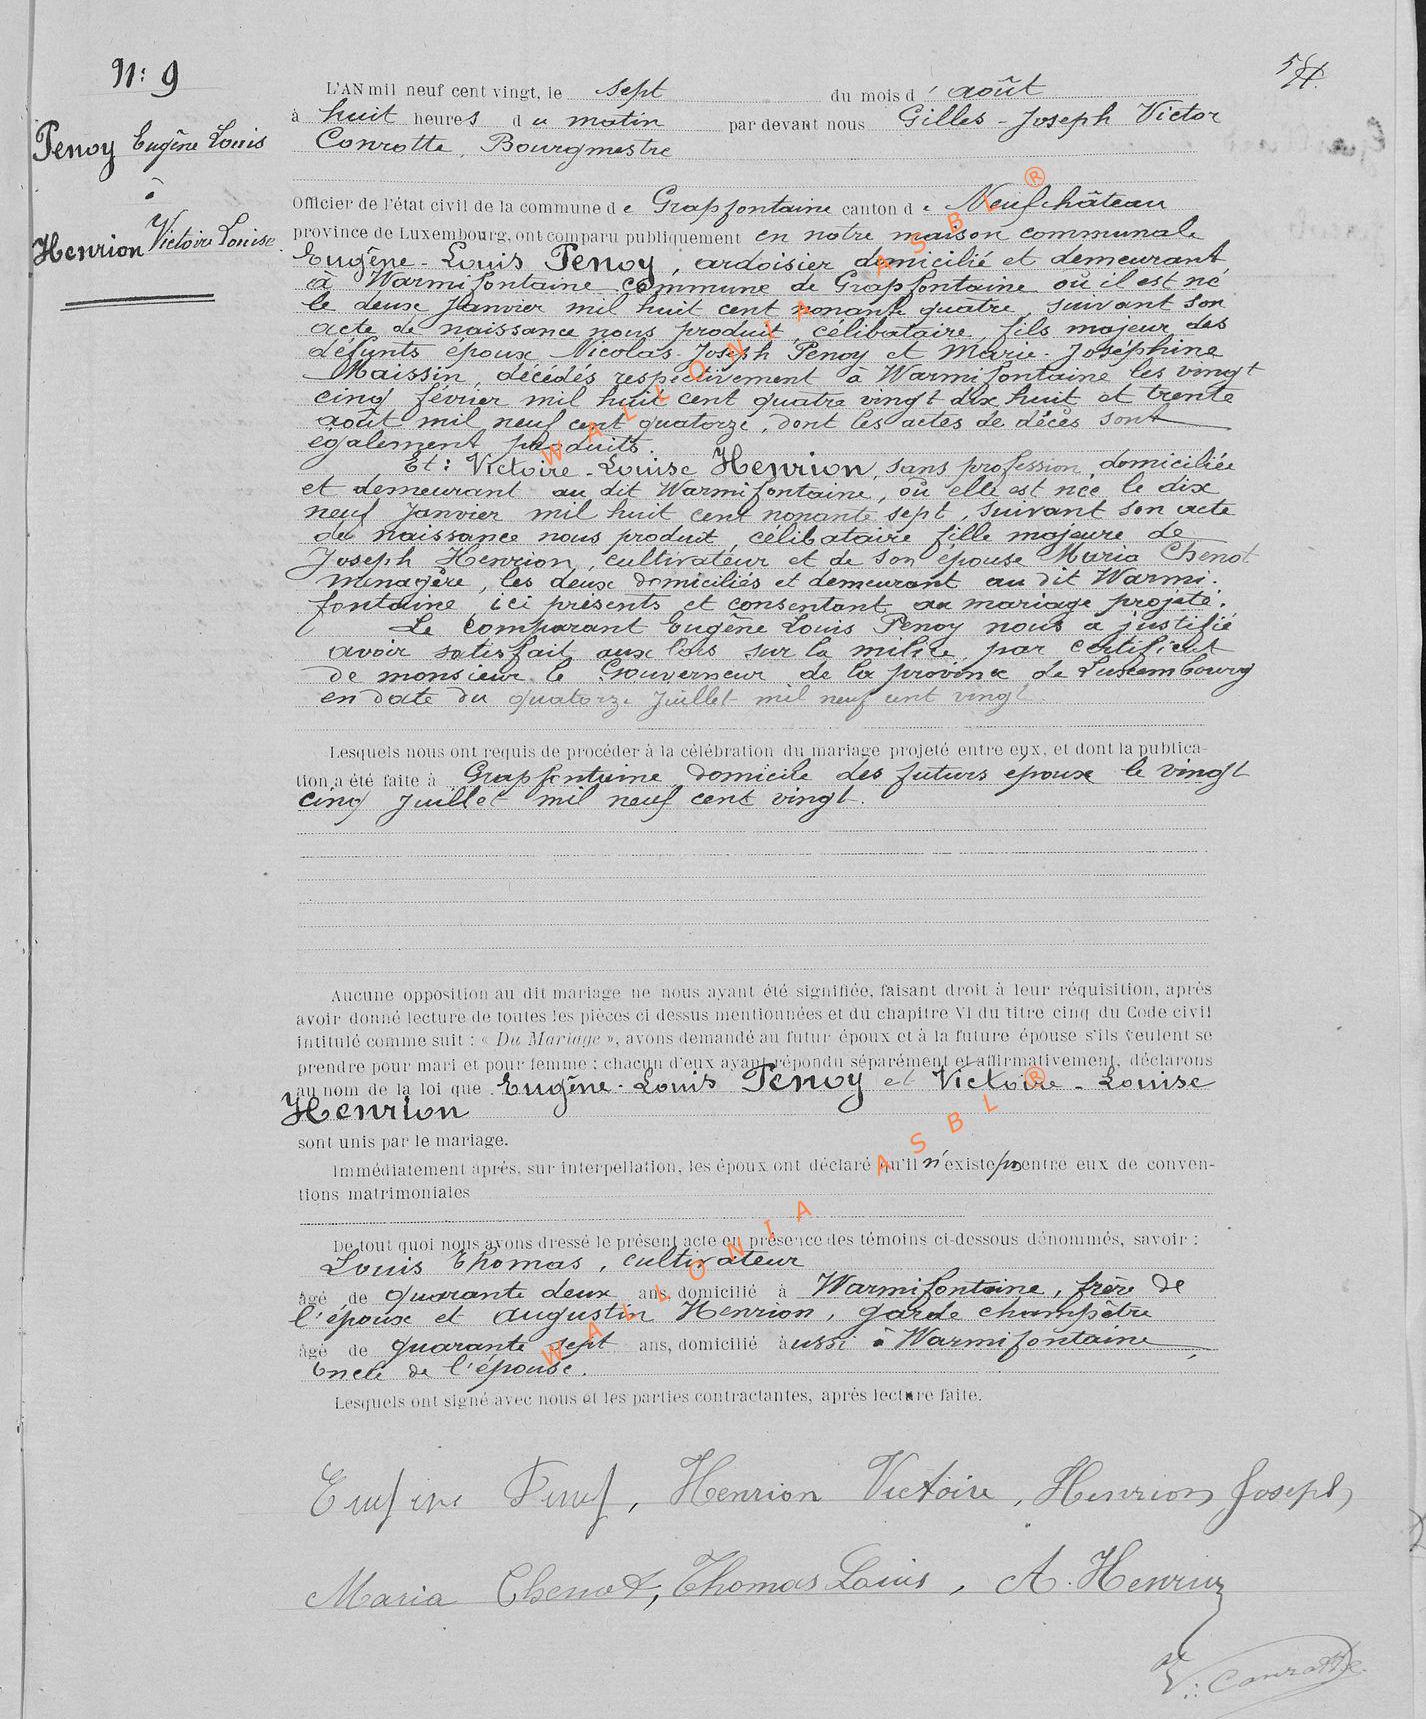 N: 9
54
L'AN mil neuf cent vingt, le sept du mois d'août
à huit heures du matin par devant nous Gilles-Joseph Victor
Penoy Eugène Louis
Conrotte, Bourgmestre
à
Henrion Victoire Louise.
Officier de l'état civil de la commune de Grapfontaine canton de Neufchâteau
province de Luxembourg, ont comparu publiquement en notre maison communale
Eugène-Louis Penoy, ardoisier domicilié et demeurant
à Warmifontaine commune de Grapfontaine où il est né
le deux Janvier mil huit cent nonante quatre suivant son
acte de naissance nous produit, célibataire, fils majeur des
défunts époux Nicolas-Joseph Penoy et Marie-Joséphine
Maissin, décédés respectivement à Warmifontaine les vingt
cinq février mil huit cent quatre vingt dix huit et trente
août mil neuf cent quatorze, dont les actes de décès sont
également produits.
Et: Victoire-Louise Henrion, sans profession, domiciliée
et demeurant au dit Warmifontaine, où elle est née le dix
neuf Janvier mil huit cent nonante sept, suivant son acte
de naissance nous produit, célibataire fille majeure de
Joseph Henrion, cultivateur et de son épouse Maria Chenot
ménagère, les deux domiciliés et demeurant au dit Warmi-
fontaine, ici présents et consentant au mariage projeté.
Le comparant Eugène Louis Penoy nous a justifié
avoir satisfait aux lois sur la milice par certificat
de monsieur le Gouverneur de la province de Luxembourg
en date du quatorze Juillet mil neuf cent vingt
Lesquels nous ont requis de procéder à la célébration du mariage projeté entre eux, et dont la publica-
tion a été faite à Grapfontaine domicile des futurs époux le vingt
cinq Juillet mil neuf cent vingt.
Aucune opposition au dit mariage ne nous ayant été signifiée, faisant droit à leur réquisition, après
avoir donné lecture de toutes les pièces ci dessus mentionnées et du chapitre VI du titre cinq du Code civil
intitulé comme suit : « Du Mariage », avons demandé au futur époux et à la future épouse s'ils veulent se
prendre pour mari et pour femme : chacun d'eux ayant répondu séparément et affirmativement, déclarons
au nom de la loi que Eugène-Louis Penoy et Victoire-Louise
Henrion
sont unis par le mariage.
Immédiatement après, sur interpellation, les époux ont déclaré qu'il n'existe pas entre eux de conven-
tions matrimoniales
De tout quoi nous avons dressé le présent acte en présence des témoins ci-dessous dénommés, savoir :
Louis Thomas, cultivateur
âgé de quarante deux ans, domicilié à Warmifontaine, frère de
l'époux et Augustin Henrion, garde champêtre
âgé de quarante sept ans, domicilié aussi à Warmifontaine,
oncle de l'épouse.
Lesquels ont signé avec nous et les parties contractantes, après lecture faite.
Eugène Penoy, Henrion Victoire, Henrion Joseph
Maria Chenot, Thomas Louis, A. Henrion
V: Conrotte
WALLONIA ASBL ®
WALLONIA ASBL ®